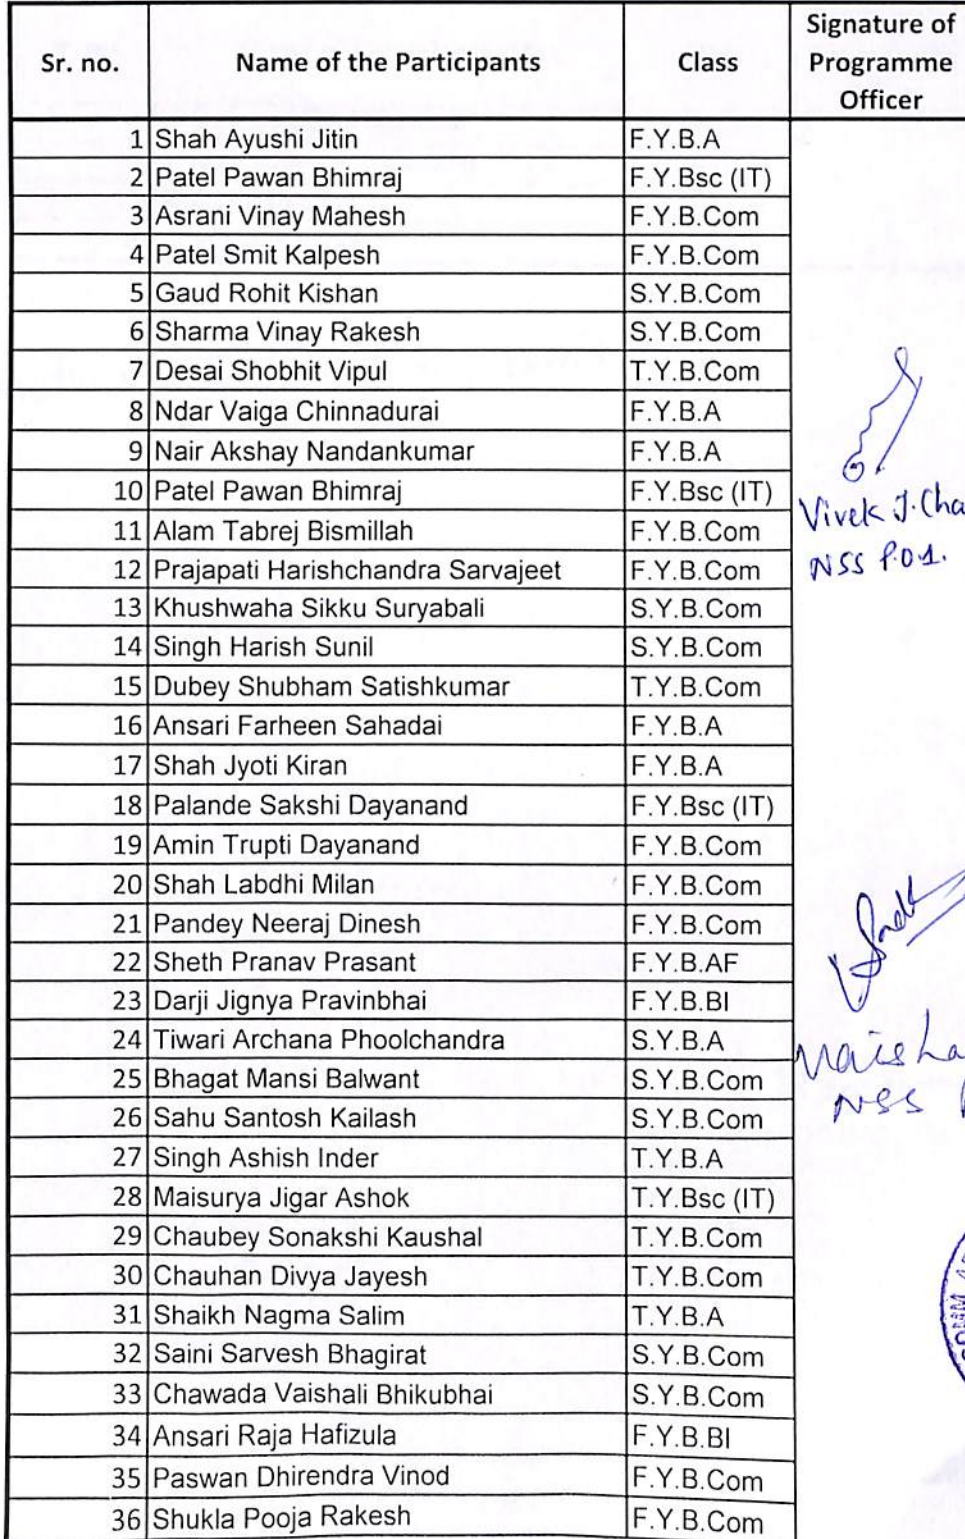 Sr. no. Name of the Participants Class Signature of Programme Officer
1 Shah Ayushi Jitin F.Y.B.A
2 Patel Pawan Bhimraj F.Y.Bsc (IT)
3 Asrani Vinay Mahesh F.Y.B.Com
4 Patel Smit Kalpesh F.Y.B.Com
5 Gaud Rohit Kishan S.Y.B.Com
6 Sharma Vinay Rakesh S.Y.B.Com
7 Desai Shobhit Vipul T.Y.B.Com
8 Ndar Vaiga Chinnadurai F.Y.B.A
9 Nair Akshay Nandankumar F.Y.B.A
10 Patel Pawan Bhimraj F.Y.Bsc (IT)
Vivek J. Cha
11 Alam Tabrej Bismillah F.Y.B.Com
12 Prajapati Harishchandra Sarvajeet F.Y.B.Com
NSS P.O.1.
13 Khushwaha Sikku Suryabali S.Y.B.Com
14 Singh Harish Sunil S.Y.B.Com
15 Dubey Shubham Satishkumar T.Y.B.Com
16 Ansari Farheen Sahadai F.Y.B.A
17 Shah Jyoti Kiran F.Y.B.A
18 Palande Sakshi Dayanand F.Y.Bsc (IT)
19 Amin Trupti Dayanand F.Y.B.Com
20 Shah Labdhi Milan F.Y.B.Com
21 Pandey Neeraj Dinesh F.Y.B.Com
22 Sheth Pranav Prasant F.Y.B.AF
23 Darji Jignya Pravinbhai F.Y.B.BI
24 Tiwari Archana Phoolchandra S.Y.B.A
Vaisha
25 Bhagat Mansi Balwant S.Y.B.Com
NSS
26 Sahu Santosh Kailash S.Y.B.Com
27 Singh Ashish Inder T.Y.B.A
28 Maisurya Jigar Ashok T.Y.Bsc (IT)
29 Chaubey Sonakshi Kaushal T.Y.B.Com
30 Chauhan Divya Jayesh T.Y.B.Com
31 Shaikh Nagma Salim T.Y.B.A
32 Saini Sarvesh Bhagirat S.Y.B.Com
33 Chawada Vaishali Bhikubhai S.Y.B.Com
34 Ansari Raja Hafizula F.Y.B.BI
35 Paswan Dhirendra Vinod F.Y.B.Com
36 Shukla Pooja Rakesh F.Y.B.Com